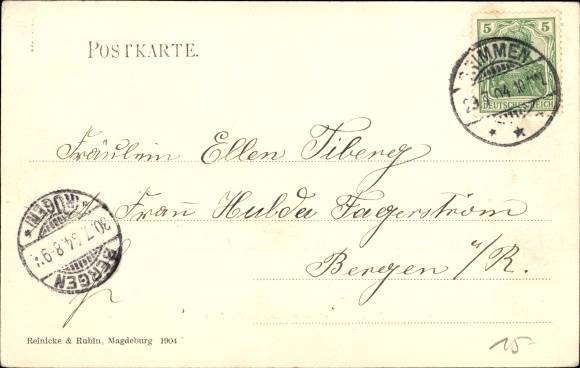 POSTKARTE.
5 5
DEUTSCHES REICH
GRIMMEN
29.7.04.10-11V.
Fräulein Ellen Tiberg
Frau Hulda Fagerström
Bergen a/R.
RÜGEN
30.7.04.8-9V.
BERGEN
Reinicke & Rubin, Magdeburg 1904
15-